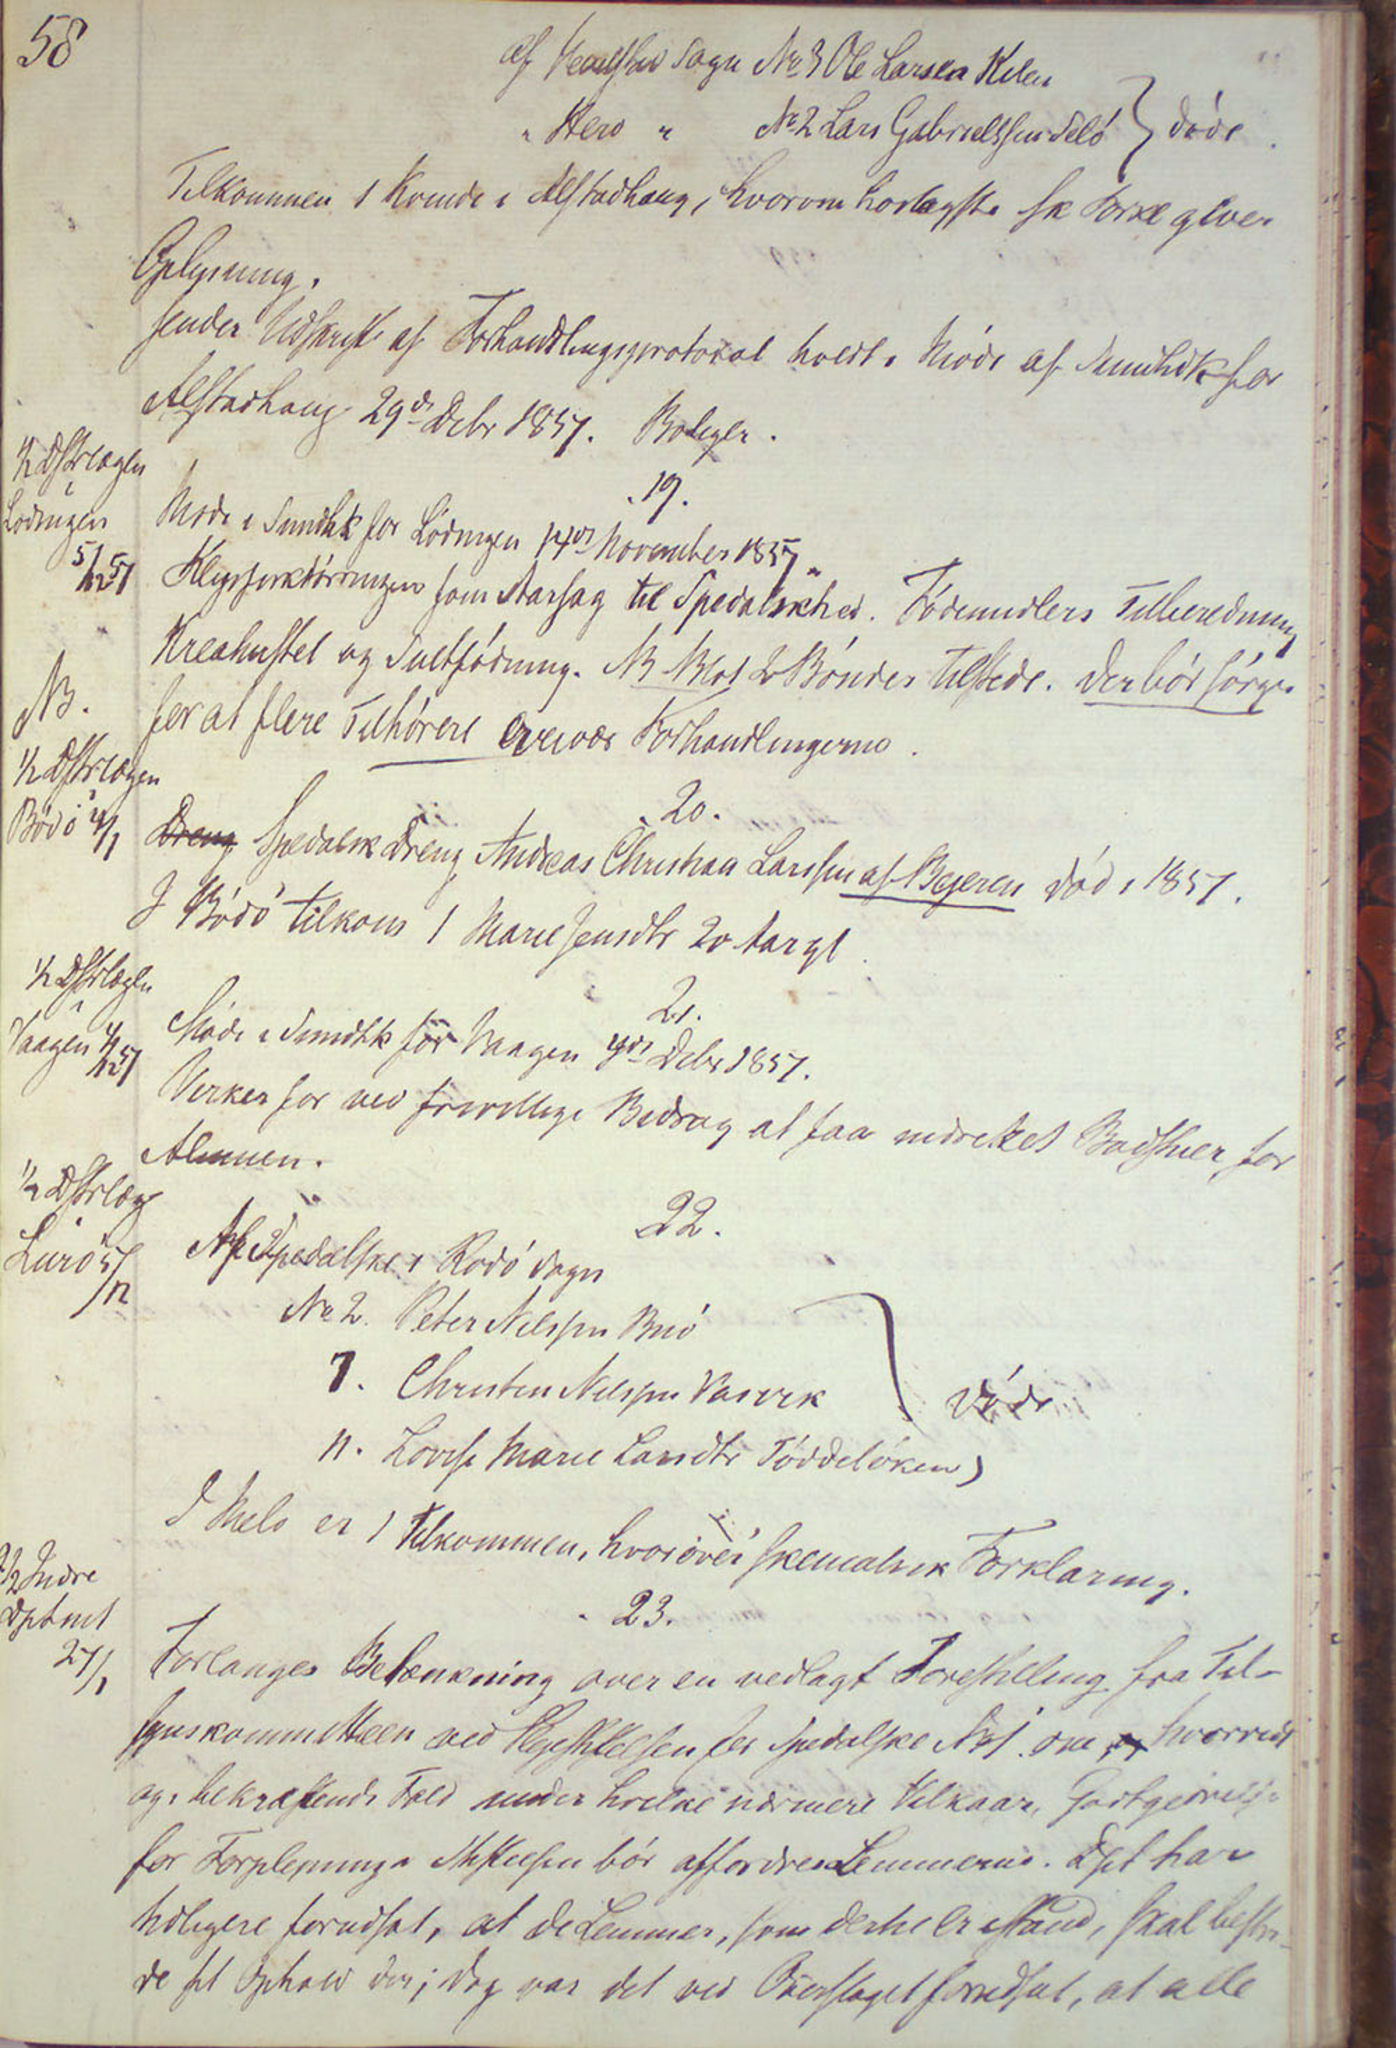 58
af Vevelstad Sogn No 3 Ole Larsen Kilen
" Herø " No 2 Lars Gabrielssen Selø } døde.
Tilkommen 1 Kvinde i Alstadhaug, hvorom hoslagste sk Forkl giver
Oplysning.
sender Udskrift af Forhandlingsprotokol holdt i Møde af Sundhdk for
Alstadhaug 29de Debr 1857. Boliger.
1/2 Dstrlægen
i
Lødingen
5/12 57
19.
Møde i Sundhk for Lødingen 14de November 1857.
Klipfisktørringen som Aarsag til Spedalskhed. Fødemidlers Tilberedning
Kreahustel og Sultfødning. NB Blot 2 Bønder tilstede. Der bør sørges
NB.
for at flere Tilhørere overvær Forhandlingerne.
1/2 Dstrlægen
i
Bodø 4/1
20.
Dreng Spedalsk Dreng Andreas Christian Larssen af Bejeren død i 1857.
I Bodø tilkom 1 Marie Jensdtr 20 Aar gl.
1/2 Dstrlægen
i
Vaagen 4/12 57
21.
Møde i Sundhk for Vaagen 4de Debr 1857.
Virker for ved frivillige Bidrag at faa indrettet Badstuer for
Almuen.
1/2 Dstrlæg
i
Lurø 5/12
22.
Af Spedalske i Rødø Sogn
No 2. Peter Nilssen Buø
7. Christen Nilssen Vasvik } Døde
11. Lovise Marie Larsdtr Tøddeløken
I Melø er 1 tilkommen, hvorover skematisk Forklaring.
2/2 Indre
Dptmt
27/1
23.
Forlanges Betænkning over en vedlagt Forestilling fra Til-
synskommitteen ved Plejestiftelsen for Spedalske No 1. om hvorvidt
og i bekræftende Fald under hvilke nærmere Vilkaar, Godtgjørelse
for Forplejning i Stiftelsen bør affordres Lemmerne. Dpt har
tidligere forudsat, at de Lemmer, som dertil er istand, skal bestri-
de sit Ophold der; dog var det ved Overslaget forudsat, at alle